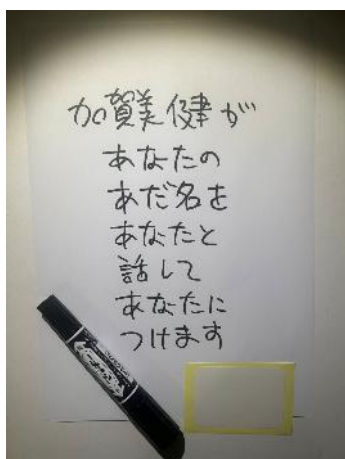 加賀美健が
あなたの
あだ名を
あなたと
話して
あなたに
つけます